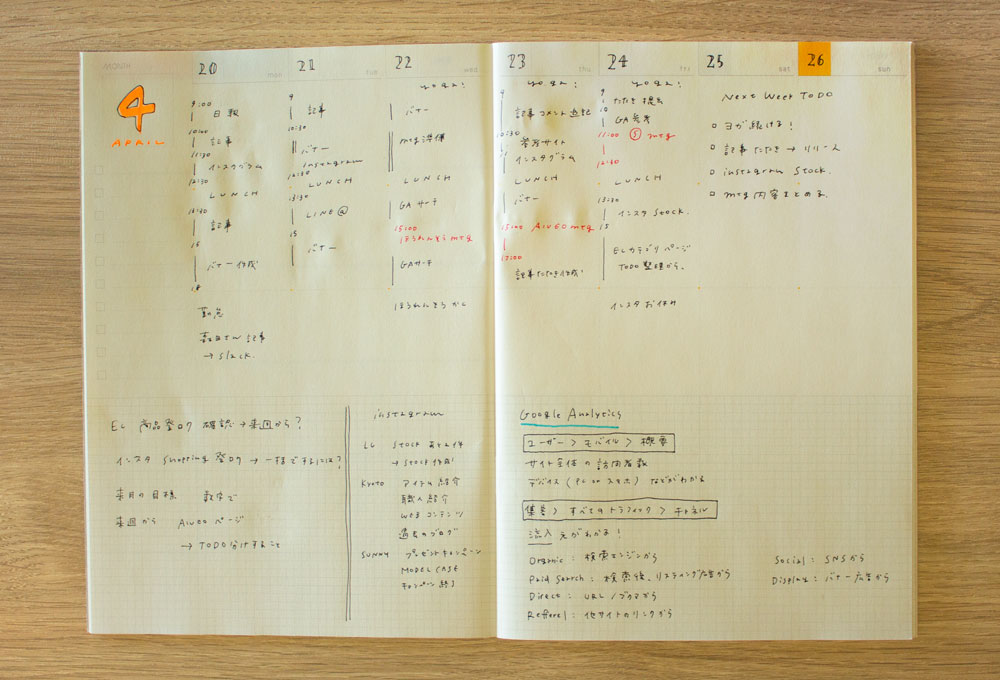 MONTH
4
APRIL
20 mon
9:00
日報
10:00
記事
11:30
インスタグラム
12:30
LUNCH
13:30
記事
15
バナー作成
18
勤怠
記事
→ Slack.
21 tue
9
記事
10:30
バナー
instagram
12:30
LUNCH
13:30
LINE@
15
バナー
22 wed
yoga!
バナー
mtg準備
LUNCH
GAサーチ
15:00
ほうれんそう mtg
GAサーチ
ほうれんそうから
23 thu
yoga!
9
記事コメント追記
10:30
参考サイト
インスタグラム
LUNCH
バナー
15:00 AIUEO mtg
17:00
記事たたき作成!
24 fri
yoga!
9
たたき提出
10
GA参考
11:00 ⑤ mtg
12:30
LUNCH
13:30
インスタ Stock.
15
ECカテゴリページ
TODO整理から。
インスタお休み
25 sat
26 sun
Next Week TODO
□ ヨガ続ける!
□ 記事たたき → リリース
□ instagram Stock.
□ mtg内容まとめる
EC 商品登ロク 確認 → 来週から?
インスタ Shopping 登ロク → 一様ですすには?
来月の目標 数字で
来週から AIUEO ページ
→ TODO分けすること
instagram
LC Stock あと2件
→ Stock作成!
Kyoto アイテム紹介
職人紹介
WEBコンテンツ
過去のブログ
SUNNY プレゼントキャンペーン
MODEL CASE
キャンペーン終了
Google Analytics
ユーザー > モバイル > 概要
サイト全体の訪問者数
デバイス (PC or スマホ) などがわかる
集客 > すべてのトラフィック > チャネル
流入元がわかる!
Organic : 検索エンジンから
Paid Search : 検索後、リスティング広告から
Direct : URL / ブクマから
Referel : 他サイトのリンクから
Social : SNSから
Display : バナー広告から